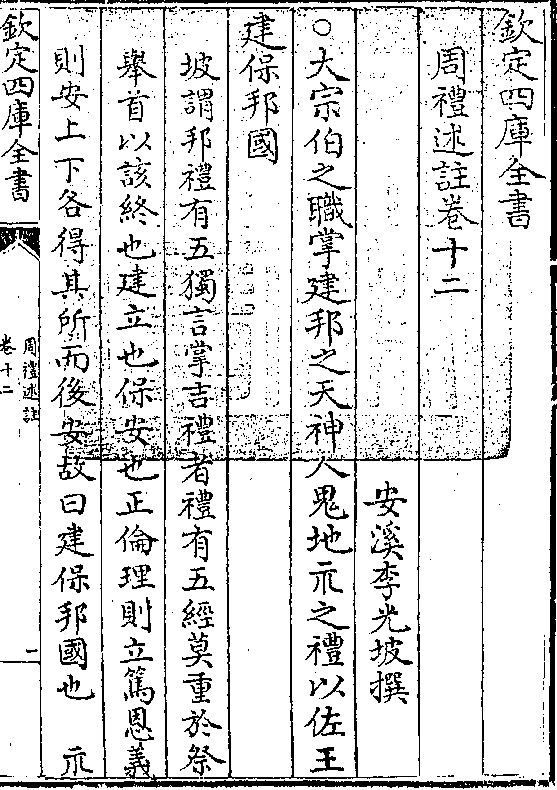 欽定四庫全書
周禮述註卷十二
安溪李光坡撰
○大宗伯之職掌建邦之天神人鬼地示之禮以佐王
建保邦國
坡謂邦禮有五獨言掌吉禮者禮有五經莫重於祭
舉首以該終也建立也保安也正倫理則立篤恩義
則安上下各得其所而後安故曰建保邦國也 示
欽定四庫全書
周禮述註
卷十二
一